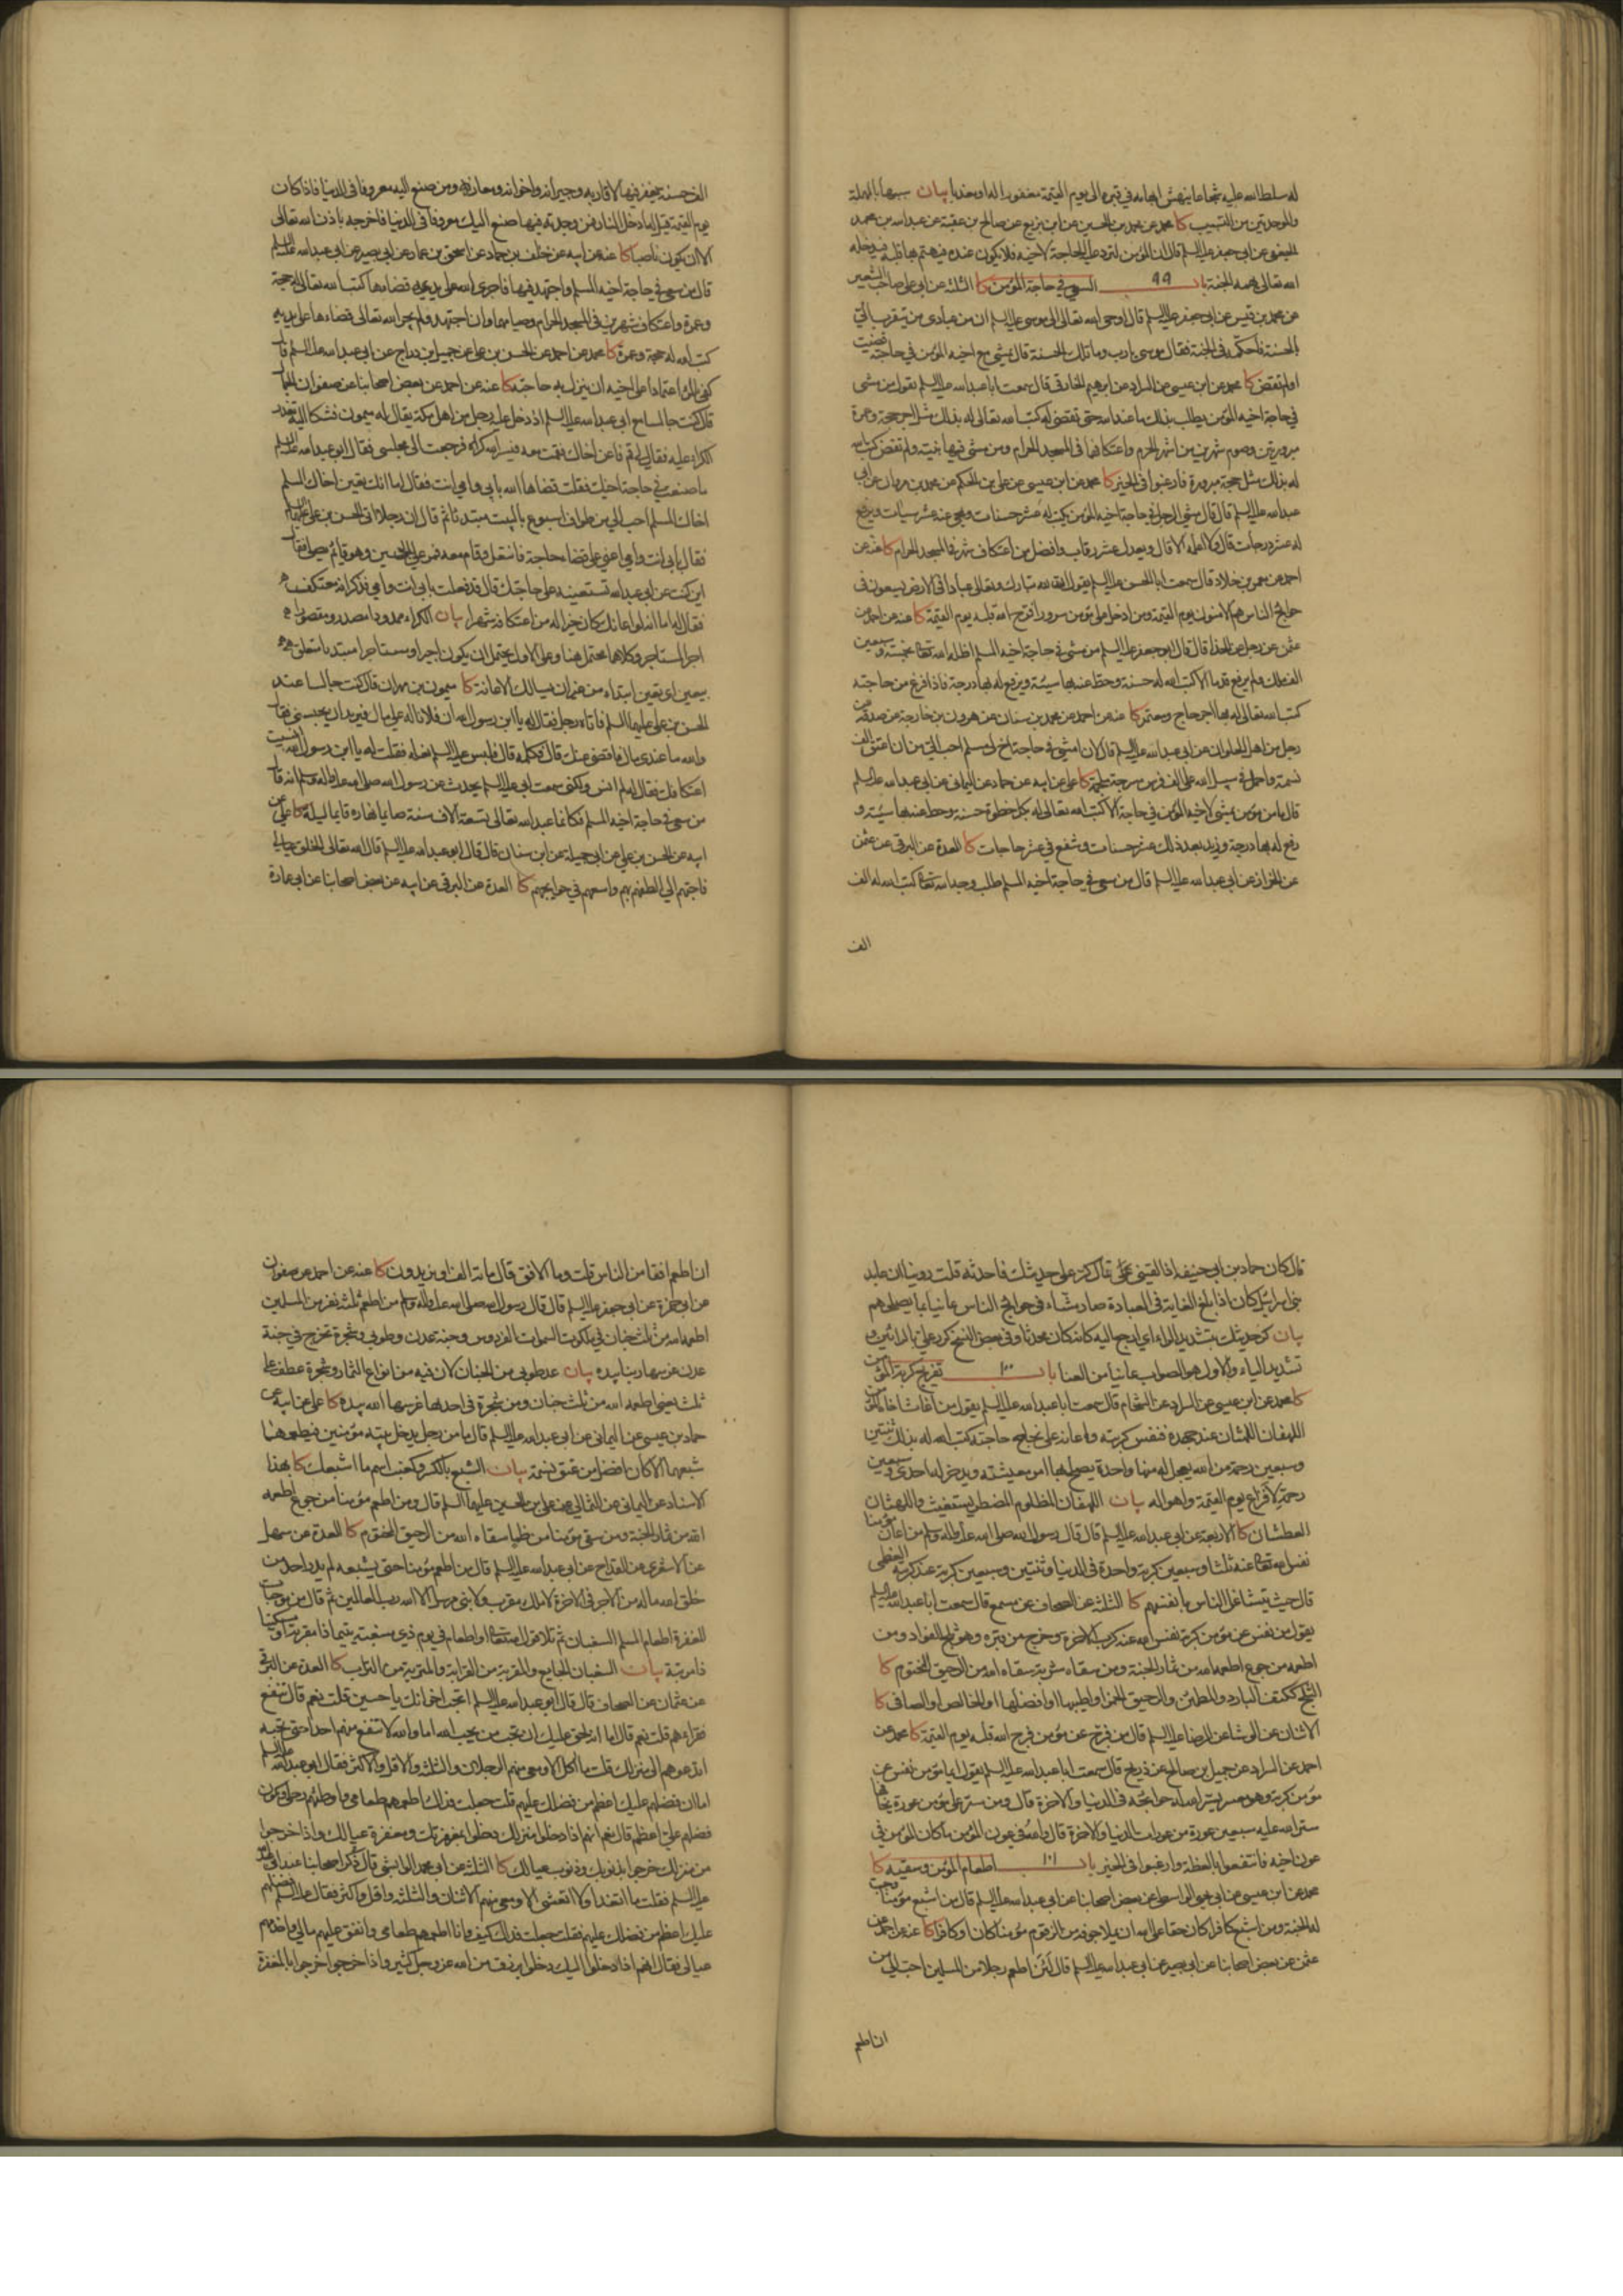 له سلطه الله عليه شجاعا ينهش ابهامه في قبره الى يوم القيمة مغفورا له او معذبا بيان سببها بالمهملة
والموحدتين من التسبيب كا محمد عن محمد بن الحسين عن ابن بزيع عن صالح بن عقبة عن عبد الله بن محمد
الجعفي عن ابي جعفر عليه السلم قال ان المؤمن لترد عليه الحاجة لاخيه فلا يكون عنده فيهتم بها قلبه فيدخله
الله تعالى بهمه الجنة باب ٩٩ السعي في حاجة المؤمن كا الثلثة عن ابي علي صاحب الشعير
عن محمد بن قيس عن ابي جعفر عليه السلم قال اوحى الله تعالى الى موسى عليه السلم ان من عبادي من يتقرب الي
بالحسنة فاحكمه في الجنة فقال موسى يا رب وما تلك الحسنة قال يمشي مع اخيه المؤمن في حاجته قضيت
او لم تقض كا محمد عن ابن عيسى عن السراد عن ابرهيم الخارقي قال سمعت ابا عبد الله عليه السلم يقول من مشى
في حاجة اخيه المؤمن يطلب بذلك ما عند الله حتى تقضى له كتب الله تعالى له بذلك مثل اجر حجة وعمرة
مبرورتين وصوم شهرين من اشهر الحرم واعتكافهما في المسجد الحرام ومن مشى فيها بنية ولم تقض كتب الله
له بذلك مثل حجة مبرورة فارغبوا في الخير كا محمد عن ابن عيسى عن علي بن الحكم عن محمد بن مروان عن ابي
عبد الله عليه السلم قال قال مشي الرجل في حاجة اخيه المؤمن يكتب له عشر حسنات ويمحى عنه عشر سيئات ويرفع
له عشر درجات قال ولا اعلمه الا قال ويعدل عشر رقاب وافضل من اعتكاف شهر في المسجد الحرام كا عنه عن
احمد عن معمر بن خلاد قال سمعت ابا الحسن عليه السلم يقول ان لله تبارك وتعالى عبادا في الارض يسعون في
حوايج الناس هم الامنون يوم القيمة ومن ادخل على مؤمن سرورا فرح الله قلبه يوم القيمة كا عنه عن احمد عن
عثمن عن رجل عن الحذاء قال قال ابو جعفر عليه السلم من مشى في حاجة اخيه المسلم اظله الله تعالى بخمسة وسبعين
الف ملك ولم يرفع قدما الا كتب الله له حسنة وحط عنه بها سيئة ويرفع له بها درجة فاذا فرغ من حاجته
كتب الله تعالى له بها اجر حاج ومعتمر كا عنه عن احمد عن محمد بن سنان عن هرون بن خارجة عن صدقة عن
رجل من اهل حلوان عن ابي عبد الله عليه السلم قال لان امشي في حاجة اخ لي مسلم احب الي من ان اعتق الف
نسمة واحمل في سبيل الله على الف فرس مسرجة ملجمة كا علي عن ابيه عن حماد عن اليماني عن ابي عبد الله عليه السلم
قال ما من مؤمن يمشي لاخيه المؤمن في حاجة الا كتب الله تعالى له بكل خطوة حسنة وحط عنه بها سيئة و
رفع له بها درجة وزيد بعد ذلك عشر حسنات وشفع في عشر حاجات كا العدة عن البرقي عن عثمن
عن الخزاز عن ابي عبد الله عليه السلم قال من سعى في حاجة اخيه المسلم طلب وجه الله تعالى كتب الله له الف
الف
الف حسنة يغفر فيها لاقاربه وجيرانه واخوانه ومعارفه ومن صنع اليه معروفا في الدنيا فاذا كان
يوم القيمة قيل له ادخل النار فمن وجدته فيها صنع اليك معروفا في الدنيا فاخرجه باذن الله تعالى
الا ان يكون ناصبا كا عنه عن ابيه عن خلف بن حماد عن اسحق بن عمار عن ابي بصير عن ابي عبد الله عليه السلم
قال من سعى في حاجة اخيه المسلم واجتهد فيها فاجرى الله على يديه قضاءها كتب الله تعالى له حجة
وعمرة واعتكاف شهرين في المسجد الحرام وصيامهما وان اجتهد ولم يجر الله تعالى قضاءها على يديه
كتب الله له حجة وعمرة كا محمد عن احمد عن الحسن بن علي عن جميل بن دراج عن ابي عبد الله عليه السلم قال
كفى بالمرء اعتمادا على اخيه ان ينزل به حاجته كا عنه عن احمد عن بعض اصحابنا عن صفوان الجمال
قال كنت جالسا مع ابي عبد الله عليه السلم اذ دخل عليه رجل من اهل مكة يقال له ميمون فشكا اليه تعذر
الكراء عليه فقال لي قم فاعن اخاك فقمت معه فيسر الله كراه فرجعت الى مجلسي فقال ابو عبد الله عليه السلم
ما صنعت في حاجة اخيك فقلت قضاها الله بابي وامي انت فقال اما انك ان تعين اخاك المسلم
احب الي من طواف اسبوع بالبيت مبتديا ثم قال ان رجلا اتى الحسن بن علي عليهما السلم
فقال بابي انت وامي اعني على قضاء حاجة فانتعل وقام معه فمر على الحسين وهو قائم يصلي فقال
اين كنت عن ابي عبد الله تستعينه على حاجتك قال قد فعلت بابي انت وامي فذكر انه معتكف
فقال له اما انه لو اعانك كان خيرا له من اعتكافه شهرا بيان الكراء ممدودا مصدر ومقصورا
اجر المستاجر وكلاهما محتمل هنا وعلى الاول يحتمل ان يكون اجيرا ومستاجرا مبتديا متعلق
بتعين اي تعين ابتداء من غير ان يسالك الاعانة كا ميمون بن مهران قال كنت جالسا عند
الحسن بن علي عليهما السلم فاتاه رجل فقال له يا ابن رسول الله ان فلانا له علي مال فيريد ان يحبسني فقال
والله ما عندي مال فاقضي عنك قال فكلمه قال فلبس عليه السلم نعله فقلت له يا ابن رسول الله انسيت
اعتكافك فقال له لم انس ولكني سمعت ابي عليه السلم يحدث عن رسول الله صلى الله عليه واله وسلم انه قال
من سعى في حاجة اخيه المسلم فكانما عبد الله تعالى تسعة الاف سنة صايما نهاره قايما ليله كا علي عن
ابيه عن الحسن بن علي عن ابي جميلة عن ابن سنان قال قال ابو عبد الله عليه السلم قال الله تعالى الخلق عيالي
فاحبهم الي الطفهم بهم واسعهم في حوايجهم كا العدة عن البرقي عن ابيه عن بعض اصحابنا عن ابي عمارة
قال كان حماد بن ابي حنيفة اذا لقيني قال كرر علي حديثك فاحدثه قلت روينا ان عابد
بني اسرائيل كان اذا بلغ الغاية في العبادة صار مشاء في حوائج الناس عانيا بما يصلحهم
بيان كرر حديثك بتشديد الراء اي ارجع اليه كانه كان محدثا وفي بعض النسخ كرر علي بالرائين و
تشديد الياء والاول هو الصواب عانيا من العنا باب ١٠٠ تفريج كربة المؤمن
كا محمد عن ابن عيسى عن السراد عن الشحام قال سمعت ابا عبد الله عليه السلم يقول من اغاث اخاه المؤمن
اللهفان اللهثان عند جهده فنفس كربته واعانه على نجاح حاجته كتب الله له بذلك ثنتين
وسبعين رحمة من الله يعجل له منها واحدة يصلح بها امر معيشته ويدخر له احدى وسبعين
رحمة لافزاع يوم القيمة واهواله بيان اللهفان المظلوم المضطر يستغيث واللهثان
العطشان كا الاربعة عن ابي عبد الله عليه السلم قال قال رسول الله صلى الله عليه واله وسلم من اعان مؤمنا
نفس الله تعالى عنه ثلثا وسبعين كربة واحدة في الدنيا وثنتين وسبعين كربة عند كربته العظمى
قال حيث يتشاغل الناس بانفسهم كا الثلثة عن الصحاف عن مسمع قال سمعت ابا عبد الله عليه السلم
يقول من نفس عن مؤمن كربة نفس الله عنه كرب الاخرة وخرج من قبره وهو ثلج الفؤاد ومن
اطعمه من جوع اطعمه الله من ثمار الجنة ومن سقاه شربة سقاه الله من الرحيق المختوم كا
الثلج ككتف البارد والمطمئن والرحيق الخمر او اطيبها او افضلها او الخالص او الصافي كا
الاثنان عن الوشا عن الرضا عليه السلم قال من فرج عن مؤمن فرج الله قلبه يوم القيمة كا محمد عن
احمد عن السراد عن جميل بن صالح عن ذريح قال سمعت ابا عبد الله عليه السلم يقول ايما مؤمن نفس عن
مؤمن كربة وهو معسر يسر الله له حوائجه في الدنيا والاخرة قال ومن ستر على مؤمن عورة يخافها
ستر الله عليه سبعين عورة من عورات الدنيا والاخرة قال والله في عون المؤمن ما كان المؤمن في
عون اخيه فانتفعوا بالعظة وارغبوا في الخير باب ١٠١ اطعام المؤمن وسقيه كا
محمد عن ابن عيسى عن ابي يحيى الواسطي عن بعض اصحابنا عن ابي عبد الله عليه السلم قال من اشبع مؤمنا وجبت
له الجنة ومن اشبع كافرا كان حقا على الله ان يملا جوفه من الزقوم مؤمنا كان او كافرا كا عنه عن احمد عن
عثمن عن بعض اصحابنا عن ابي بصير عن ابي عبد الله عليه السلم قال لئن اطعم رجلا من المسلمين احب الي من
ان اطعم
ان اطعم افقا من الناس قلت وما الافق قال مائة الف او يزيدون كا عنه عن احمد عن صفوان
عن ابي حمزة عن ابي جعفر عليه السلم قال قال رسول الله صلى الله عليه واله وسلم من اطعم ثلثة نفر من المسلمين
اطعمه الله من ثلث جنان في ملكوت السموات الفردوس وجنة عدن وطوبى وشجرة تخرج في جنة
عدن غرسها ربنا بيده بيان عد طوبى من الجنان لان فيه من انواع الثمار وشجرة عطف على
ثلث يعني اطعمه الله من ثلث جنان ومن شجرة في احدها غرسها الله بيده كا علي عن ابيه عن
حماد بن عيسى عن اليماني عن ابي عبد الله عليه السلم قال ما من رجل يدخل بيته مؤمنين فيطعمهما
شبعهما الا كان افضل من عتق نسمة بيان الشبع بالكسر وكعنب اسم ما اشبعك كا بهذا
الاسناد عن اليماني عن الثمالي عن علي بن الحسين عليهما السلم قال ومن اطعم مؤمنا من جوع اطعمه
الله من ثمار الجنة ومن سقى مؤمنا من ظما سقاه الله من الرحيق المختوم كا العدة عن سهل
عن الاشعري عن القداح عن ابي عبد الله عليه السلم قال من اطعم مؤمنا حتى يشبعه لم يدر احد من
خلق الله ما له من الاجر في الاخرة لا ملك مقرب ولا نبي مرسل الا الله رب العالمين ثم قال من موجبات
المغفرة اطعام المسلم السغبان ثم تلا قول الله تعالى او اطعام في يوم ذي مسغبة يتيما ذا مقربة او مسكينا
ذا متربة بيان السغبان الجايع والمقربة من القرابة والمتربة من التراب كا العدة عن البرقي
عن عثمان عن الصحاف قال قال ابو عبد الله عليه السلم اتحب اخوانك يا حسين قلت نعم قال تنفع
فقراءهم قلت نعم قال اما انه يحق عليك ان تحب من يحب الله اما والله لا تنفع منهم احدا حتى تحبه
اتدعوهم الى منزلك قلت ما اكل الا ومعي منهم الرجلان والثلثة والاقل والاكثر فقال ابو عبد الله عليه السلم
اما ان فضلهم عليك اعظم من فضلك عليهم قلت جعلت فداك اطعمهم طعامي واوطئهم رحلي ويكون
فضلهم علي اعظم قال نعم انهم اذا دخلوا منزلك دخلوا بمغفرتك ومغفرة عيالك واذا خرجوا
من منزلك خرجوا بذنوبك وذنوب عيالك كا الثلثة عن ابي محمد الوابشي قال ذكر اصحابنا عند ابي عبد الله
عليه السلم فقلت ما اتغدا ولا اتعشى الا ومعي منهم الاثنان والثلثة واقل واكثر فقال عليه السلم فضلهم
عليك اعظم من فضلك عليهم فقلت جعلت فداك كيف وانا اطعمهم طعامي وانفق عليهم مالي واخدمهم
عيالي فقال انهم اذا دخلوا عليك دخلوا برزق من الله عز وجل كثير واذا خرجوا خرجوا بالمغفرة